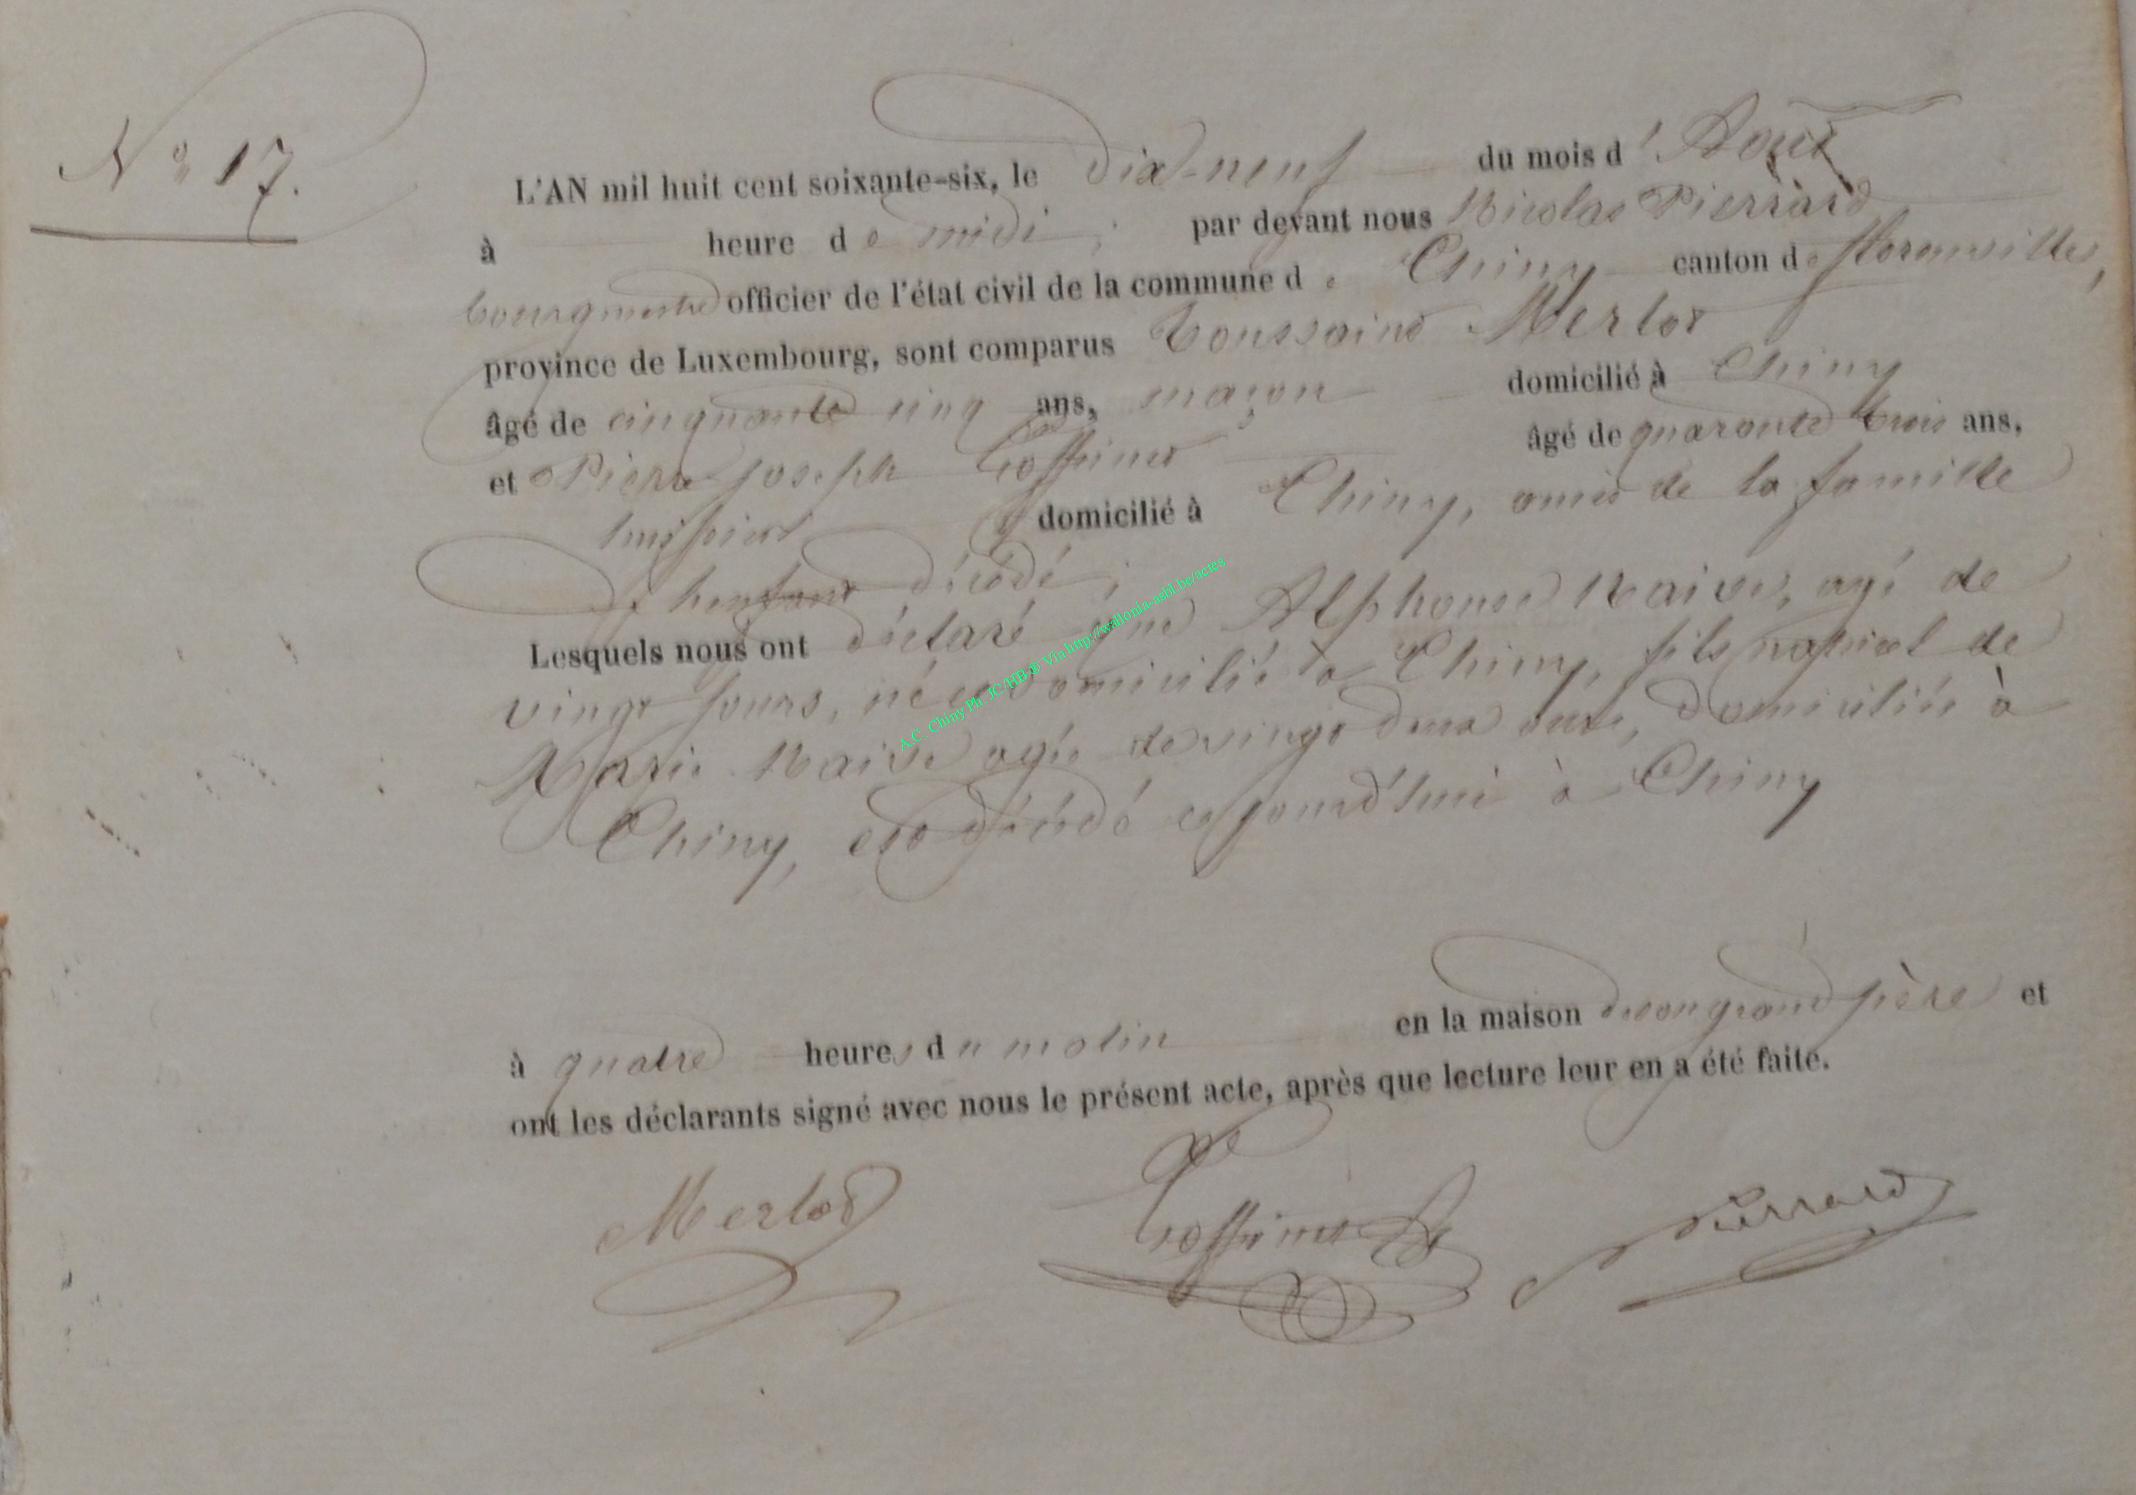 N° 17.
L'AN mil huit cent soixante-six, le dix-neuf du mois d'Août
à heure de midi, par devant nous Nicolas Pierrard
bourgmestre officier de l'état civil de la commune de Chiny canton de florenville,
province de Luxembourg, sont comparus Toussaint Merlot
âgé de cinquante cinq ans, maçon domicilié à Chiny
et Pierre Joseph Goffinet âgé de quarante trois ans,
domicilié à Chiny, amis de la famille
décédé;
Lesquels nous ont déclaré que Alphonse Naivé, agé de
vingt jours, né et domicilié à Chiny, fils naturel de
Marie Naivé agée de vingt deux ans, domiciliée à
Chiny, est décédé cejourd'hui à Chiny
à quatre heures du matin en la maison de son grand père et
ont les déclarants signé avec nous le présent acte, après que lecture leur en a été faite.
Merlot Goffinet Pierrard
A.C. Chiny Ph. JC-HB ® Via http://wallonia-asbl.be/actes